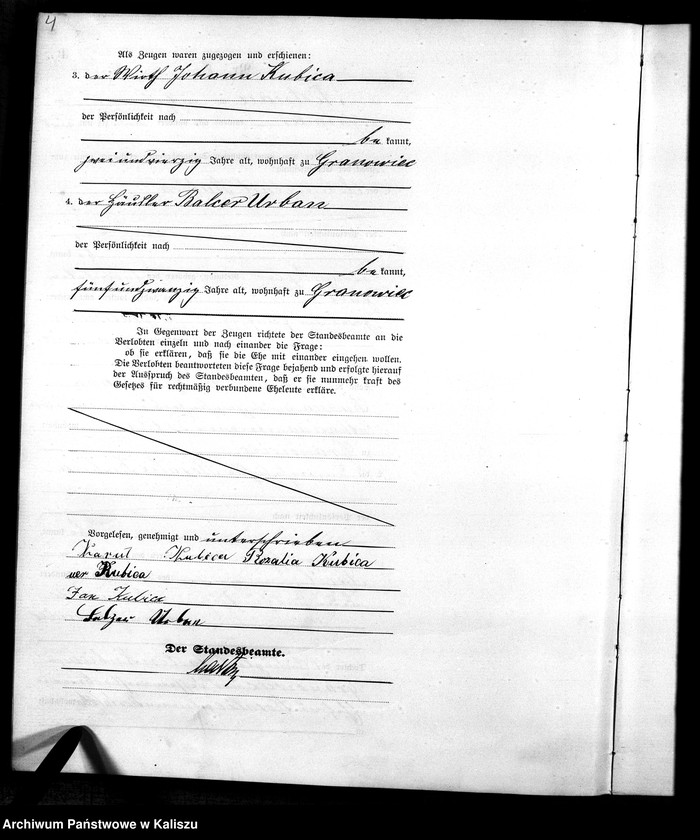 4
Als Zeugen waren zugezogen und erschienen:
3. der Wirth Johann Kubica
der Persönlichkeit nach
be kannt,
zweiundvierzig Jahre alt, wohnhaft zu Granowiec
4. der Häusler Balcer Urban
der Persönlichkeit nach
be kannt,
fünfundzwanzig Jahre alt, wohnhaft zu Granowiec
In Gegenwart der Zeugen richtete der Standesbeamte an die
Verlobten einzeln und nach einander die Frage:
ob sie erklären, daß sie die Ehe mit einander eingehen wollen.
Die Verlobten beantworteten diese Frage bejahend und erfolgte hierauf
der Ausspruch des Standesbeamten, daß er sie nunmehr kraft des
Gesetzes für rechtmäßig verbundene Eheleute erkläre.
Vorgelesen, genehmigt und unterschrieben
Karul Kubica Rozalia Kubica
Kubica
Jan Kubica
Urban
Der Standesbeamte.
Archiwum Państwowe w Kaliszu